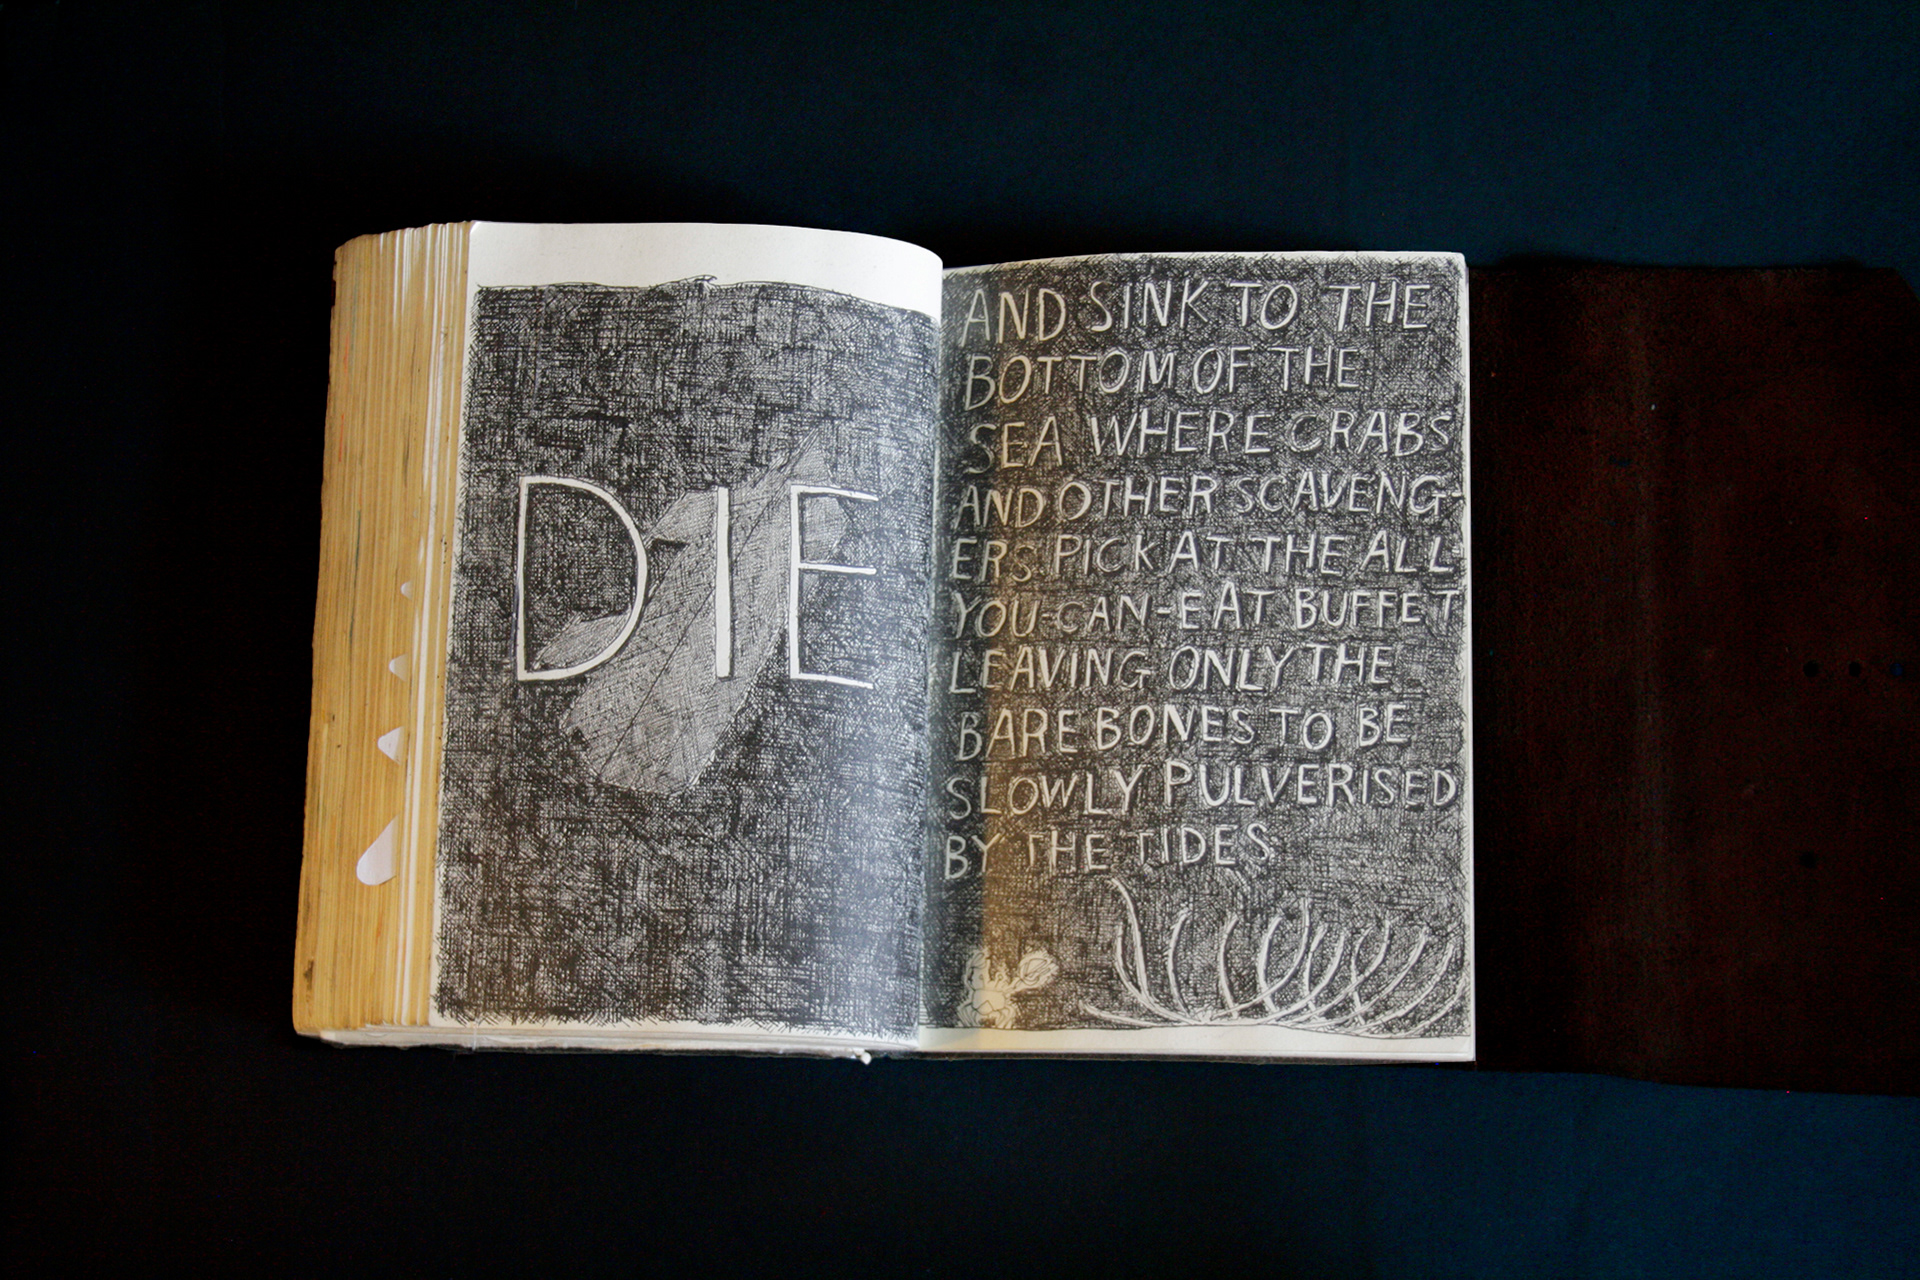 DIE
AND SINK TO THE
BOTTOM OF THE
SEA WHERE CRABS
AND OTHER SCAVENG-
ERS PICK AT THE ALL-
YOU-CAN-EAT BUFFET
LEAVING ONLY THE
BARE BONES TO BE
SLOWLY PULVERISED
BY THE TIDES